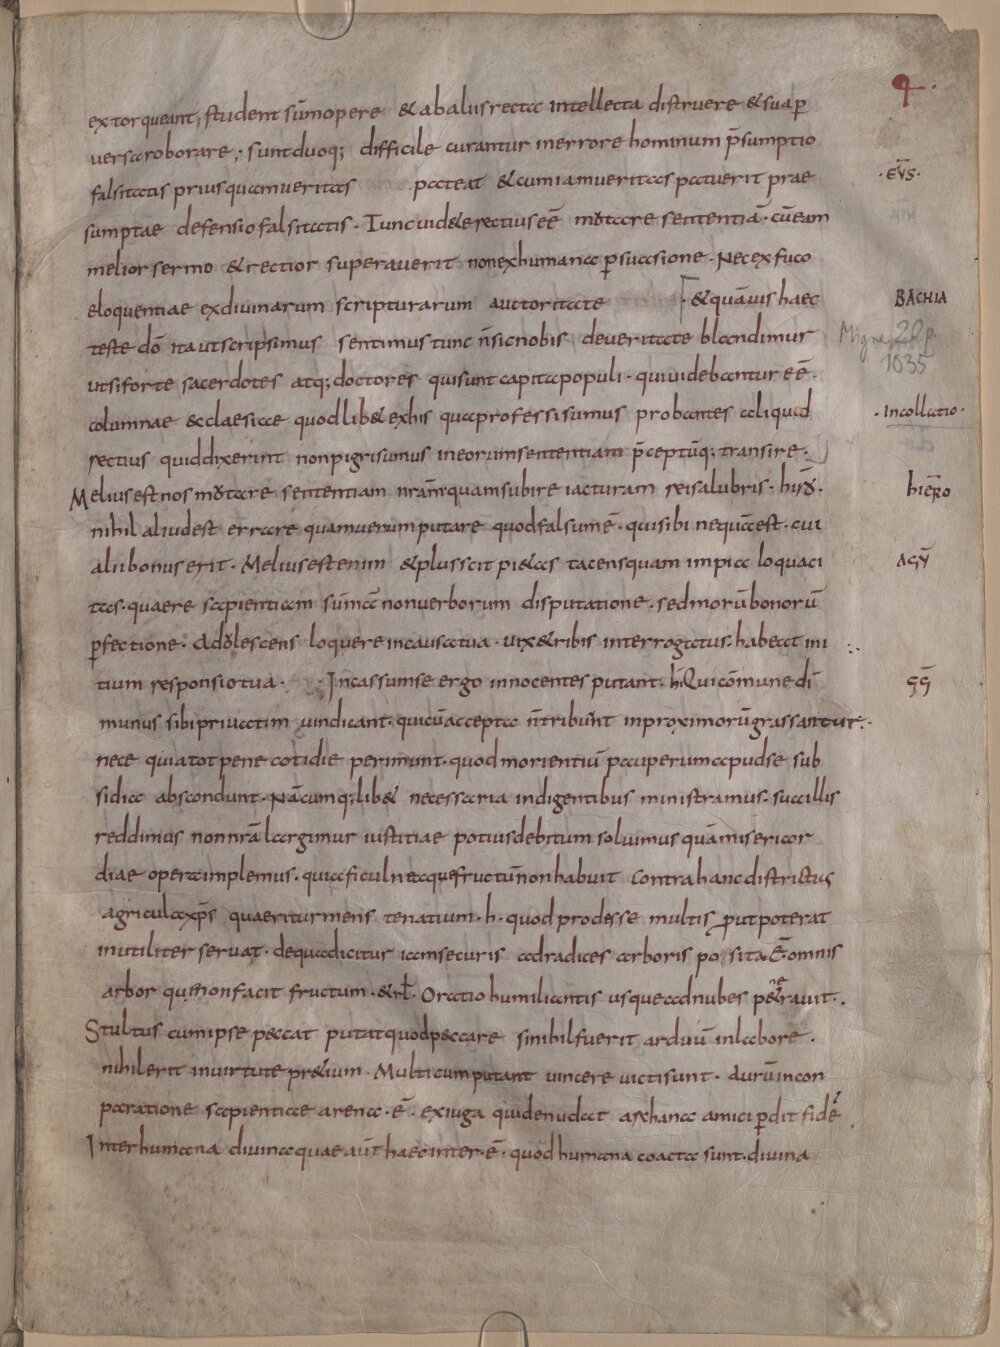 q.
extorqueant; student sūmopere & ab aliis recta intellecta distruere & sua ꝑ
versa roborare; sunt duoq; difficile curantur in errore hominum p̄sumptio
falsitatis prius quam veritas pateat & cum iam veritas patuerit prae
·EV̄S·
sumptae defensio falsitatis. Tunc vid& rectius eē mutare sententiā. cū eam
melior sermo & rectior superaverit non ex humana ꝑsuasione. Nec ex fuco
eloquentiae ex divinarum scripturarum auctoritate · & quāvis haec
BACHIA
teste dō ita ut scripsimus sentimus tunc n̄ sic nobis de veritate blandimur
Migne 20 p.
1035
ut si forte sacerdotes atq; doctores qui sunt capita populi. qui videbantur eē.
columnae &cclaesiae quod lib& ex his quae professi sumus probantes aliquid
·In collatio·
rectius quid dixerint non pigri sumus in eorum sententiam p̄ceptūq; transire.
Melius est nos mutare sententiam nrām quam subire iacturam rei salubris.
hiēro
nihil aliud est errare quam verum putare quod falsum ē. qui sibi nequā est. cui
alii bonus erit. Melius est enim & plus scit pi&as tacens quam impia loquaci
AGV̄
tas. quaere sapientiam sūmā non verborum disputatione. sed morū bonorū
ꝑfectione. Adolescens loquere in causa tua. vix & si bis interrogatus. habeat ini
tium responsio tua. · In cassum se ergo innocentes putant. h̄. Qui cōmune di
ḠḠ
munus sibi privatim vindicant. qui cū accepta n̄ tribuūt in proximorū grassantur.
nece quia tot pene cotidie perimunt. quod morientiū pauperum apud se sub
sidia abscondunt. Nā cum q;lib& necessaria indigentibus ministramus. sua illis
reddimus non nrā largimur iustitiae potius debitum solvimus quā misericor
diae opera implemus. quia ficulnea quae fructū non habuit contra hanc districtus
agricula xp̄s quaeritur mens tenatium. h. quod prodesse multis put poterat
inutiliter servat. de qua dicitur iam securis ad radices arboris posita. Ē. omnis
arbor qui non facit fructum. & rł. Oratio humiliantis usque ad nubes pen&ravit.
Stultus cum ipse peccat putat quod peccare si nihil fuerit arduū in labore.
nihil erit in virtute pr&ium. Multi cum putant vincere victi sunt. Aurū in con
paratione sapientiae arena. ē. exiuga qui denudat archana amici ꝑdit fidē
Inter humana divinaque aūt haec inter. ē. quod humana coacta sunt. divina